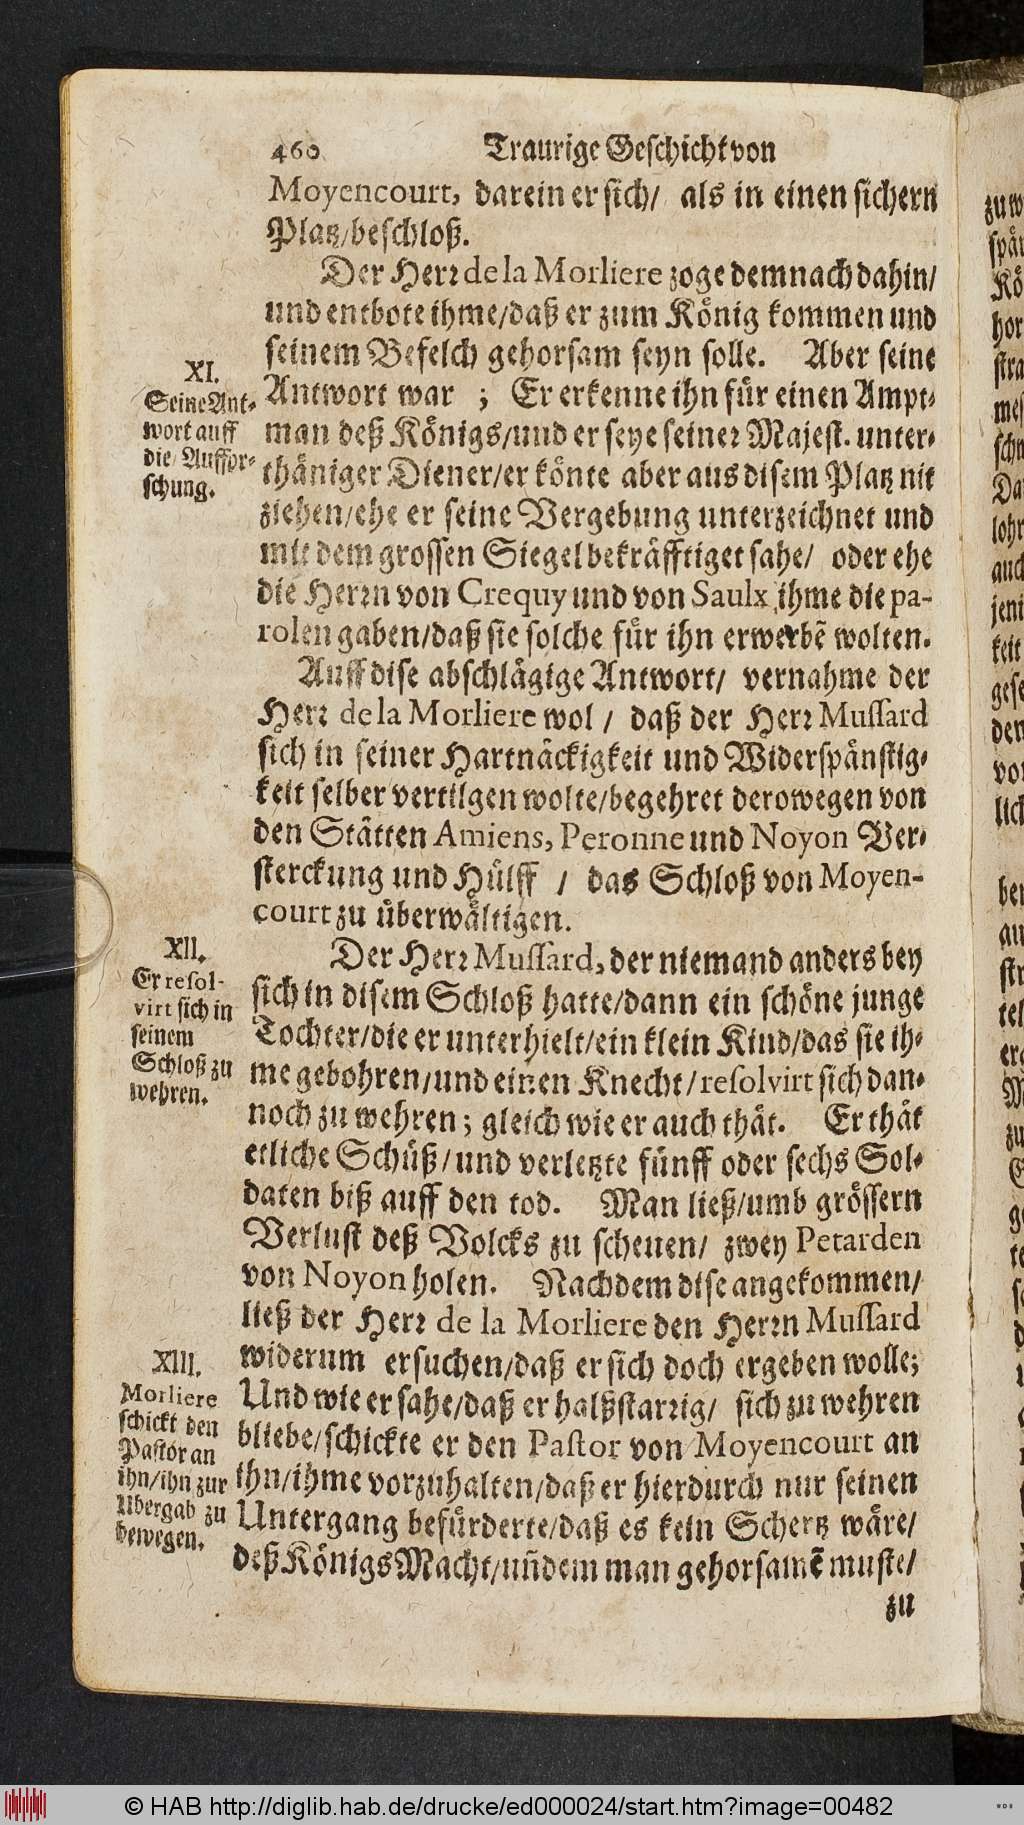 460 Traurige Geschicht von
Moyencourt, darein er sich/ als in einen sichern
Platz/beschloß.
Der Herr de la Morliere zoge demnach dahin/
und entbote ihme/daß er zum König kommen und
seinem Befelch gehorsam seyn solle. Aber seine
XI.
Seine Ant-
wort auff
die Auffor-
schung.
Antwort war ; Er erkenne ihn für einen Ampt-
man deß Königs/und er seye seiner Majest. unter-
thäniger Diener/er könte aber aus disem Platz nit
ziehen/ehe er seine Vergebung unterzeichnet und
mit dem grossen Siegel bekräfftiget sahe/ oder ehe
die Herrn von Crequy und von Saulx ihme die pa-
rolen gaben/daß sie solche für ihn erwerbẽ wolten.
Auff dise abschlägige Antwort/ vernahme der
Herr de la Morliere wol / daß der Herr Mussard
sich in seiner Hartnäckigkeit und Widerspänstig-
keit selber vertilgen wolte/begehret derowegen von
den Stätten Amiens, Peronne und Noyon Ver-
sterckung und Hülff / das Schloß von Moyen-
court zu überwältigen.
XII.
Er resol-
virt sich in
seinem
Schloß zu
wehren.
Der Herr Mussard, der niemand anders bey
sich in disem Schloß hatte/dann ein schöne junge
Tochter/die er unterhielt/ein klein Kind/das sie ih-
me gebohren/und einen Knecht/resolvirt sich dan-
noch zu wehren; gleich wie er auch thät. Er thät
etliche Schüß/und verletzte fünff oder sechs Sol-
daten biß auff den tod. Man ließ/umb grössern
Verlust deß Volcks zu scheuen/ zwey Petarden
von Noyon holen. Nachdem dise angekommen/
ließ der Herr de la Morliere den Herrn Mussard
widerum ersuchen/daß er sich doch ergeben wolle;
XIII.
Morliere
schickt den
Pastor an
ihn/ihn zur
Ubergab zu
bewegen.
Und wie er sahe/daß er halßstarrig/ sich zu wehren
bliebe/schickte er den Pastor von Moyencourt an
ihn/ihme vorzuhalten/daß er hierdurch nur seinen
Untergang befürderte/daß es kein Schertz wäre/
deß Königs Macht/uñ dem man gehorsamẽ muste/
zu
© HAB http://diglib.hab.de/drucke/ed000024/start.htm?image=00482